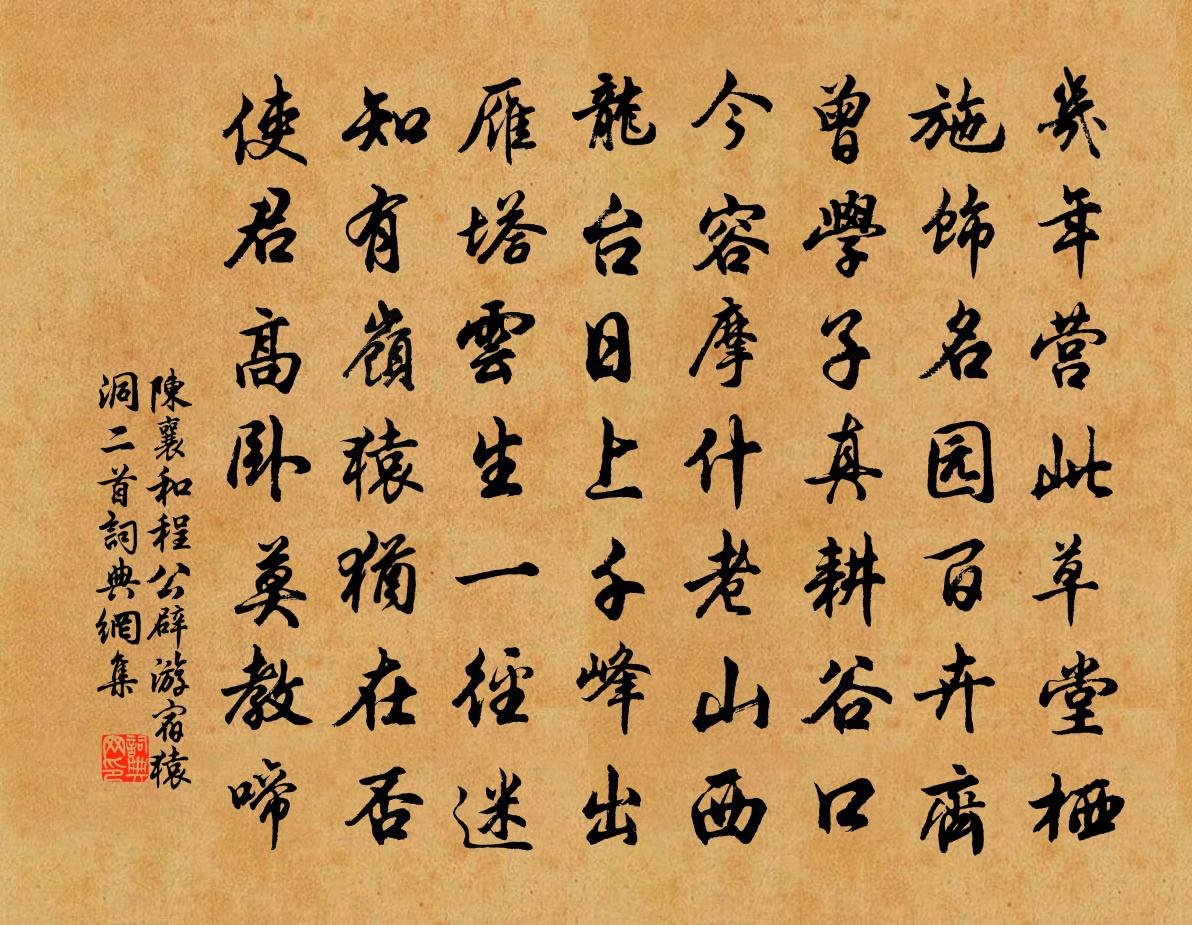 幾年营此草堂栖
施飾名园百卉齊
曾學子真耕谷口
今容摩什老山西
龍台日上千峰出
雁塔雲生一徑迷
知有嶺猿猶在否
使君高卧莫教啼
陳襄和程公辟游宿猿
洞二首詞典網集
詞典
网印